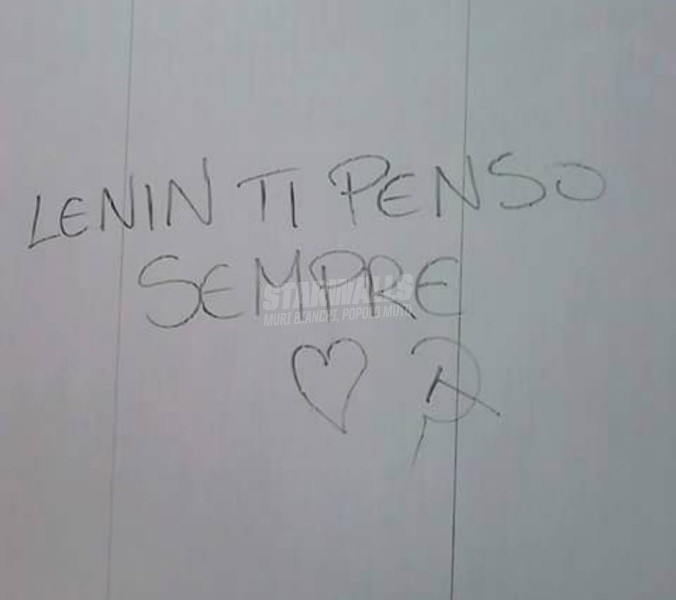 LENIN TI PENSO
SEMPRE
STARWALLS
MURI BIANCHI, POPOLO MUTO